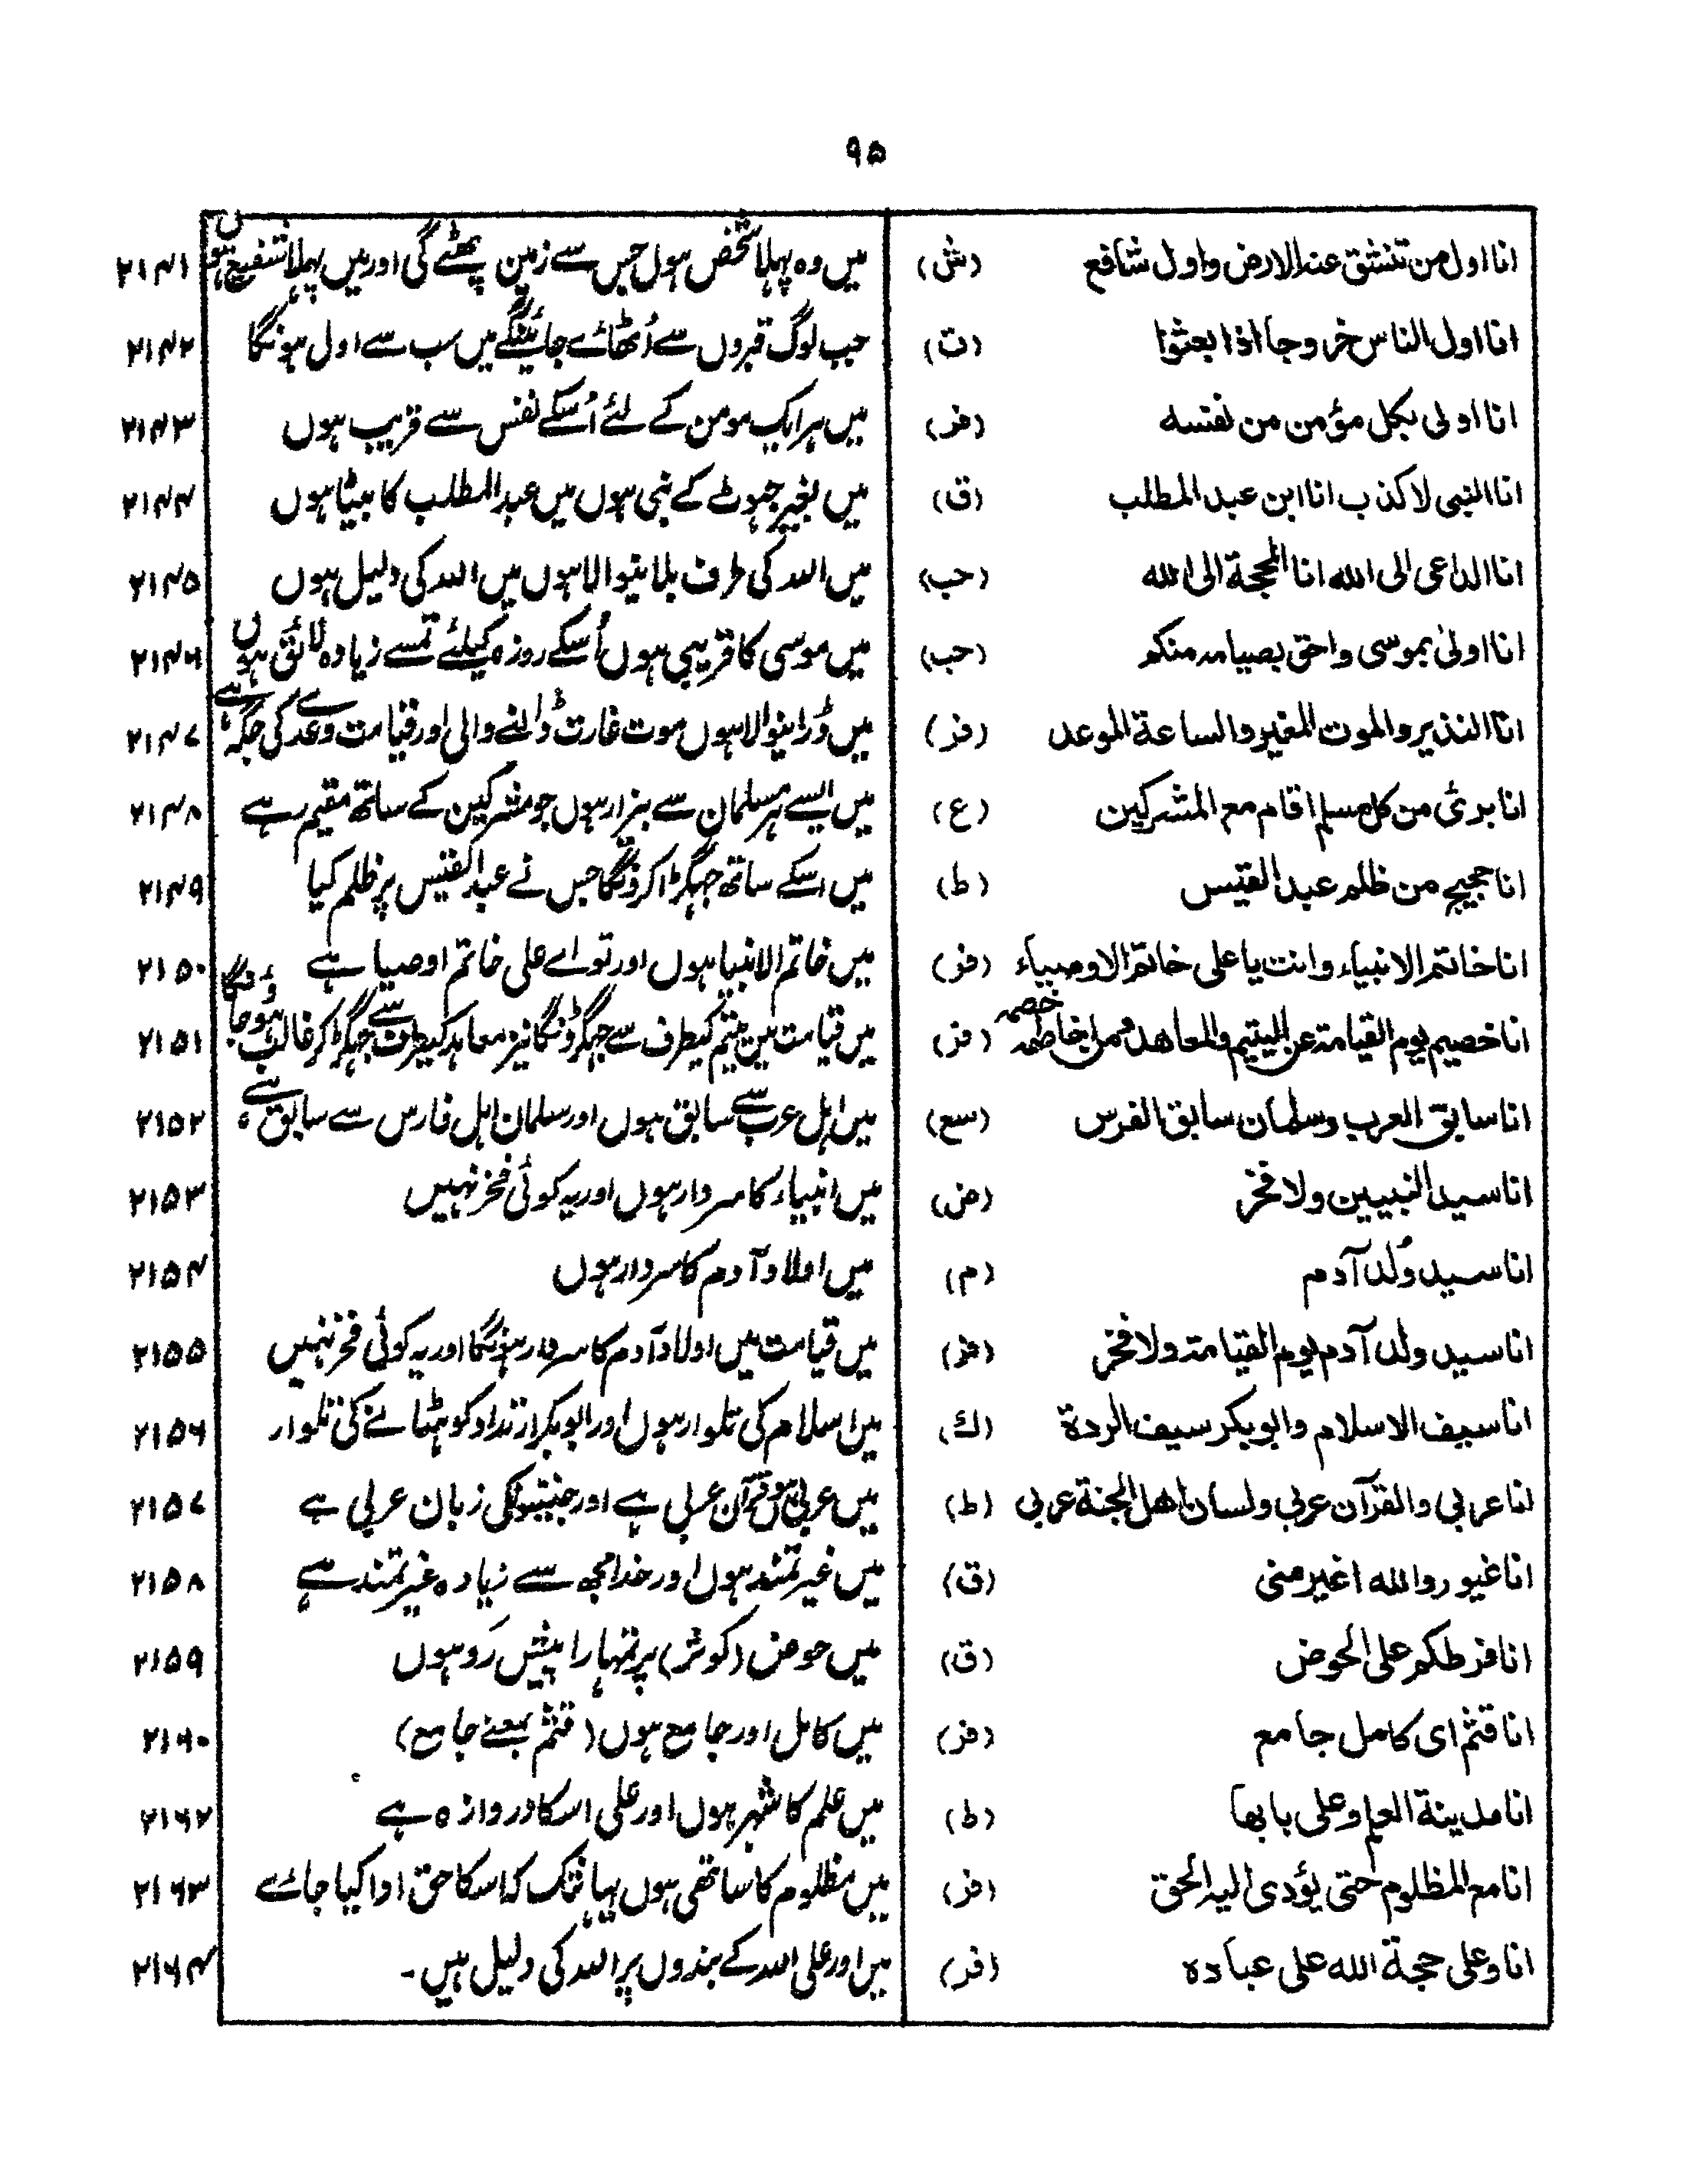 ۹۵
انا اول من تنشق عنه الارض واول شافع (ش) میں وہ پہلا شخص ہوں جس سے زمین پھٹے گی اور میں پہلا شفیع ہوں ۲۱۴۱
انا اول الناس خروجا اذا بعثوا (ت) جب لوگ قبروں سے اُٹھائے جائینگے میں سب سے اول ہونگا ۲۱۴۲
انا اولی بکل مؤمن من نفسه (فر) میں ہر ایک مومن کے لئے اُسکے نفس سے قریب ہوں ۲۱۴۳
انا النبی لا کذب انا ابن عبد المطلب (ق) میں بغیر جہوٹ کے نبی ہوں میں عبد المطلب کا بیٹا ہوں ۲۱۴۴
انا الداعی الی الله انا الحجة الی الله (حب) میں اللہ کی طرف بلانیوالا ہوں میں اللہ کی دلیل ہوں ۲۱۴۵
انا اولیٰ بموسی واحق بصیامه منکم (حب) میں موسی کا قریبی ہوں اُسکے روزہ کیلئے تمسے زیادہ لائق ہوں ۲۱۴۶
انا النذیر والموت المغیر والساعة الموعد (فر) میں ڈرانیوالا ہوں موت غارت ڈالنے والی اور قیامت وعدے کی جگہ ہے ۲۱۴۷
انا برئ من کل مسلم اقام مع المشرکین (ع) میں ایسے ہر مسلمان سے بیزار ہوں جو مشرکین کے ساتھ مقیم رہے ۲۱۴۸
انا حجیج من ظلم عبد القیس (ط) میں اسکے ساتھ جہگڑا کرونگا جس نے عبد القیس پر ظلم کیا ۲۱۴۹
انا خاتم الانبیاء وانت یا علی خاتم الاوصیاء (فر) میں خاتم الانبیا ہوں اور تو اے علی خاتم اوصیا ہے ۲۱۵۰
انا خصیم یوم القیامة عن الیتیم والمعاهد ومن اخاصمه خصمه (فر) میں قیامت میں یتیم کیطرف سے جہگڑونگا نیز معاہد کیطرف سے جہگڑ کر غالب ہوجاؤنگا ۲۱۵۱
انا سابق العرب وسلمان سابق الفرس (سع) میں اہل عرب سے سابق ہوں اور سلمان اہل فارس سے سابق ہے ۲۱۵۲
انا سید النبیین ولا فخر (ض) میں انبیاء کا سردار ہوں اور یہ کوئی فخر نہیں ۲۱۵۳
انا سید وُلد آدم (م) میں اولاد آدم کا سردار ہوں ۲۱۵۴
انا سید ولد آدم یوم القیامة ولا فخر میں قیامت میں اولاد آدم کا سردار ہونگا اور یہ کوئی فخر نہیں ۲۱۵۵
انا سیف الاسلام وابوبکر سیف الردة (ك) میں اسلام کی تلوار ہوں اور ابوبکر ارتداد کو ہٹانے کی تلوار ۲۱۵۶
انا عربی والقرآن عربی ولسان اهل الجنة عربی (ط) میں عربی ہوں قرآن عربی ہے اور جنتیوں کی زبان عربی ہے ۲۱۵۷
انا غیور والله اغیر منی (ق) میں غیرتمند ہوں اور خدا مجھ سے زیادہ غیرتمند ہے ۲۱۵۸
انا فرطکم علی الحوض (ق) میں حوض (کوثر) پر تمہارا پیش رَو ہوں ۲۱۵۹
انا قثم ای کامل جامع (فر) میں کامل اور جامع ہوں (قثم بمعنے جامع) ۲۱۶۰
انا مدینة العلم وعلی بابها (ط) میں علم کا شہر ہوں اور علی اسکا دروازہ ہے ۲۱۶۲
انا مع المظلوم حتی یؤدی الیه الحق (فر) میں مظلوم کا ساتھی ہوں یہانتک کہ اسکا حق ادا کیا جائے ۲۱۶۳
انا وعلی حجة الله علی عباده (فر) میں اور علی اللہ کے بندوں پر اللہ کی دلیل ہیں۔ ۲۱۶۴